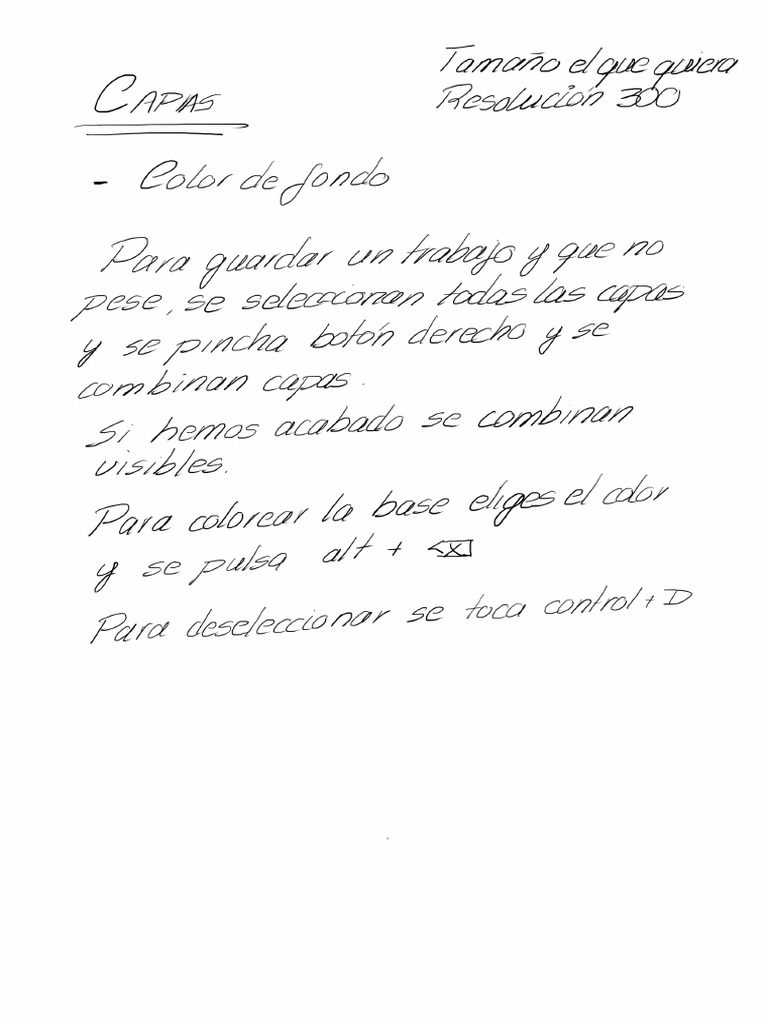 Tamaño el que quiera
Resolución 300
CAPAS
- Color de fondo
Para guardar un trabajo y que no
pese, se seleccionan todas las capas
y se pincha botón derecho y se
combinan capas.
Si hemos acabado se combinan
visibles.
Para colorear la base eliges el color
y se pulsa alt + ⌫
Para deseleccionar se toca control + D